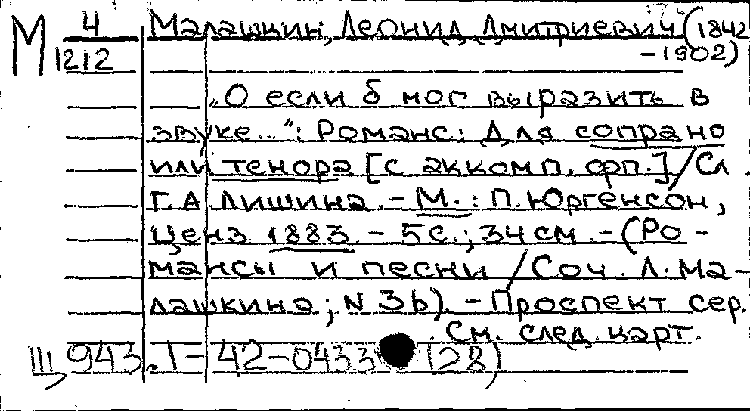 М 4 Малашкин, Леонид Дмитриевич (1842
1212 -1902)
„О если б мог выразить в
звуке..": Романс: Для сопрано
или тенора [с аккомп. фп.] / Сл.
Г.А Лишина. - М.: П. Юргенсон,
ценз. 1883. - 5 с.; 34 см. - (Ро-
мансы и песни / Соч. Л. Ма-
лашкина; N 3b). - Проспект сер.
См. след. карт.
III 943.1-42-0433 (28)